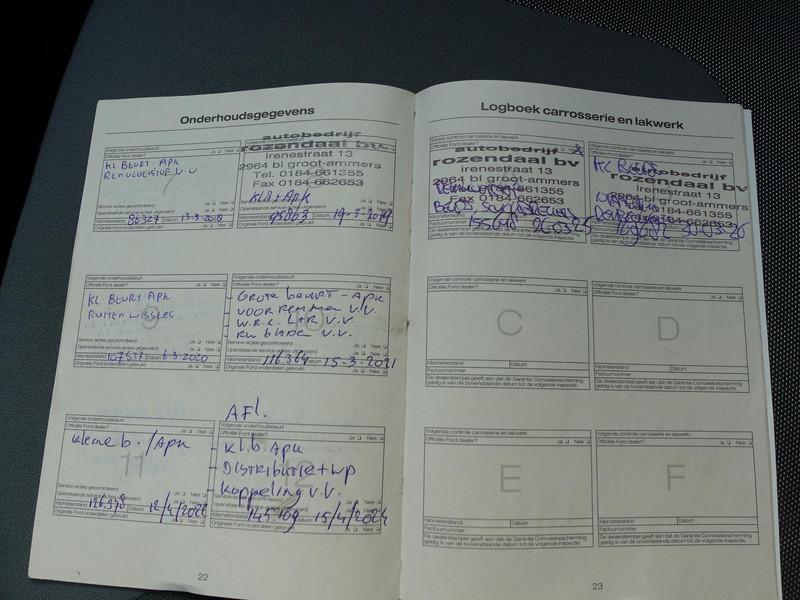 Onderhoudsgegevens
Volgende onderhoudsbeurt
Officiële Ford dealer? Ja Nee
KL BEURT. APK
REMVLOEISTOF V.V
Service-acties gecontroleerd
Openstaande service-acties uitgevoerd Ja Nee
Kilometerstand 86327 Datum 13-3-2018
Originele Ford onderdelen gebruikt Ja Nee
autobedrijf
rozendaal bv
irenestraat 13
2964 bl groot-ammers
Tel. 0184-661355
Fax 0184-662653
KLB + APK
Kilometerstand 95003 Datum 19-3-2019
Originele Ford onderdelen gebruikt Ja Nee
Volgende onderhoudsbeurt
Officiële Ford dealer? Ja Nee
KL BEURT APK
RUITENWISSERS
9
Service-acties gecontroleerd
Openstaande service-acties uitgevoerd
Kilometerstand 107537 Datum 6-3-2020
Originele Ford onderdelen gebruikt
Volgende onderhoudsbeurt
Officiële Ford dealer? Ja Nee
- GROTE BEURT - APK
VOORREMMEN V.V.
W.R.C. L+R V.V.
RU BLADEN V.V.
Service-acties gecontroleerd
Kilometerstand 116364 Datum 15-3-2021
Originele Ford onderdelen gebruikt Ja Nee
Volgende onderhoudsbeurt
Officiële Ford dealer? Ja Nee
Kleine b. / APK
11
Service-acties gecontroleerd
Openstaande service-acties uitgevoerd Ja Nee
Kilometerstand 126378 Datum 12/4/2022
Originele Ford onderdelen gebruikt Ja Nee
AFL.
Volgende onderhoudsbeurt
Officiële Ford dealer? Ja Nee
- KL.b. APK
- DISTRIBUTIE + WP
- Koppeling V.V.
12
Kilometerstand 145109 Datum 15/4/2024
Originele Ford onderdelen gebruikt Ja Nee
22
Logboek carrosserie en lakwerk
Eerste controle carrosserie en lakwerk
autobedrijf
rozendaal bv
irenestraat 13
2964 bl groot-ammers
Tel. 0184-661355
Fax 0184-662653
De dealerstempel geeft aan dat de Garantie Corrosiebescherming
geldig is van de bovenstaande datum tot de volgende inspectie.
Volgende controle carrosserie en lakwerk
Ja Nee
autobedrijf
rozendaal bv
irenestraat 13
2964 bl groot-ammers
Tel. 0184-661355
Fax 0184-662653
De dealerstempel geeft aan dat de Garantie Corrosiebescherming
geldig is van de bovenstaande datum tot de volgende inspectie.
Volgende controle carrosserie en lakwerk
Officiële Ford dealer? Ja Nee
C
Kilometerstand Datum
Factuurnummer
De dealerstempel geeft aan dat de Garantie Corrosiebescherming
geldig is van de bovenstaande datum tot de volgende inspectie.
Volgende controle carrosserie en lakwerk
Officiële Ford dealer? Ja Nee
D
Kilometerstand Datum
Factuurnummer
De dealerstempel geeft aan dat de Garantie Corrosiebescherming
geldig is van de bovenstaande datum tot de volgende inspectie.
Volgende controle carrosserie en lakwerk
Officiële Ford dealer? Ja Nee
E
Kilometerstand Datum
Factuurnummer
De dealerstempel geeft aan dat de Garantie Corrosiebescherming
geldig is van de bovenstaande datum tot de volgende inspectie.
Volgende controle carrosserie en lakwerk
Officiële Ford dealer? Ja Nee
F
Kilometerstand Datum
Factuurnummer
De dealerstempel geeft aan dat de Garantie Corrosiebescherming
geldig is van de bovenstaande datum tot de volgende inspectie.
23